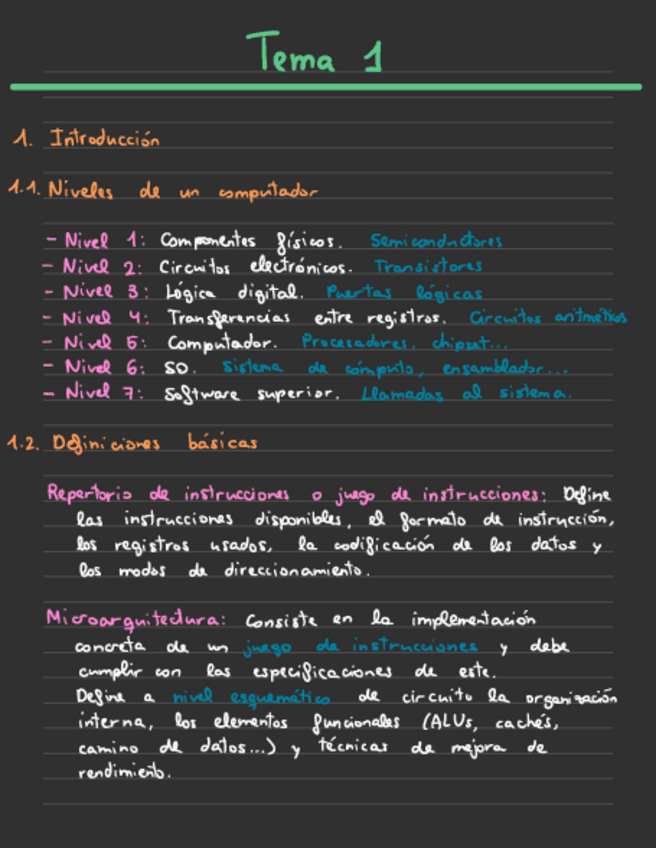 Tema 1
1. Introducción
1.1. Niveles de un computador
- Nivel 1: Componentes físicos. Semiconductores
- Nivel 2: Circuitos electrónicos. Transistores
- Nivel 3: Lógica digital. Puertas lógicas
- Nivel 4: Transferencias entre registros. Circuitos aritméticos
- Nivel 5: Computador. Procesadores, chipset...
- Nivel 6: SO. Sistema de cómputo, ensamblador...
- Nivel 7: Software superior. Llamadas al sistema.
1.2. Definiciones básicas
Repertorio de instrucciones o juego de instrucciones: Define
las instrucciones disponibles, el formato de instrucción,
los registros usados, la codificación de los datos y
los modos de direccionamiento.
Microarquitectura: Consiste en la implementación
concreta de un juego de instrucciones y debe
cumplir con las especificaciones de este.
Define a nivel esquemático de circuito la organización
interna, los elementos funcionales (ALUs, cachés,
camino de datos...) y técnicas de mejora de
rendimiento.